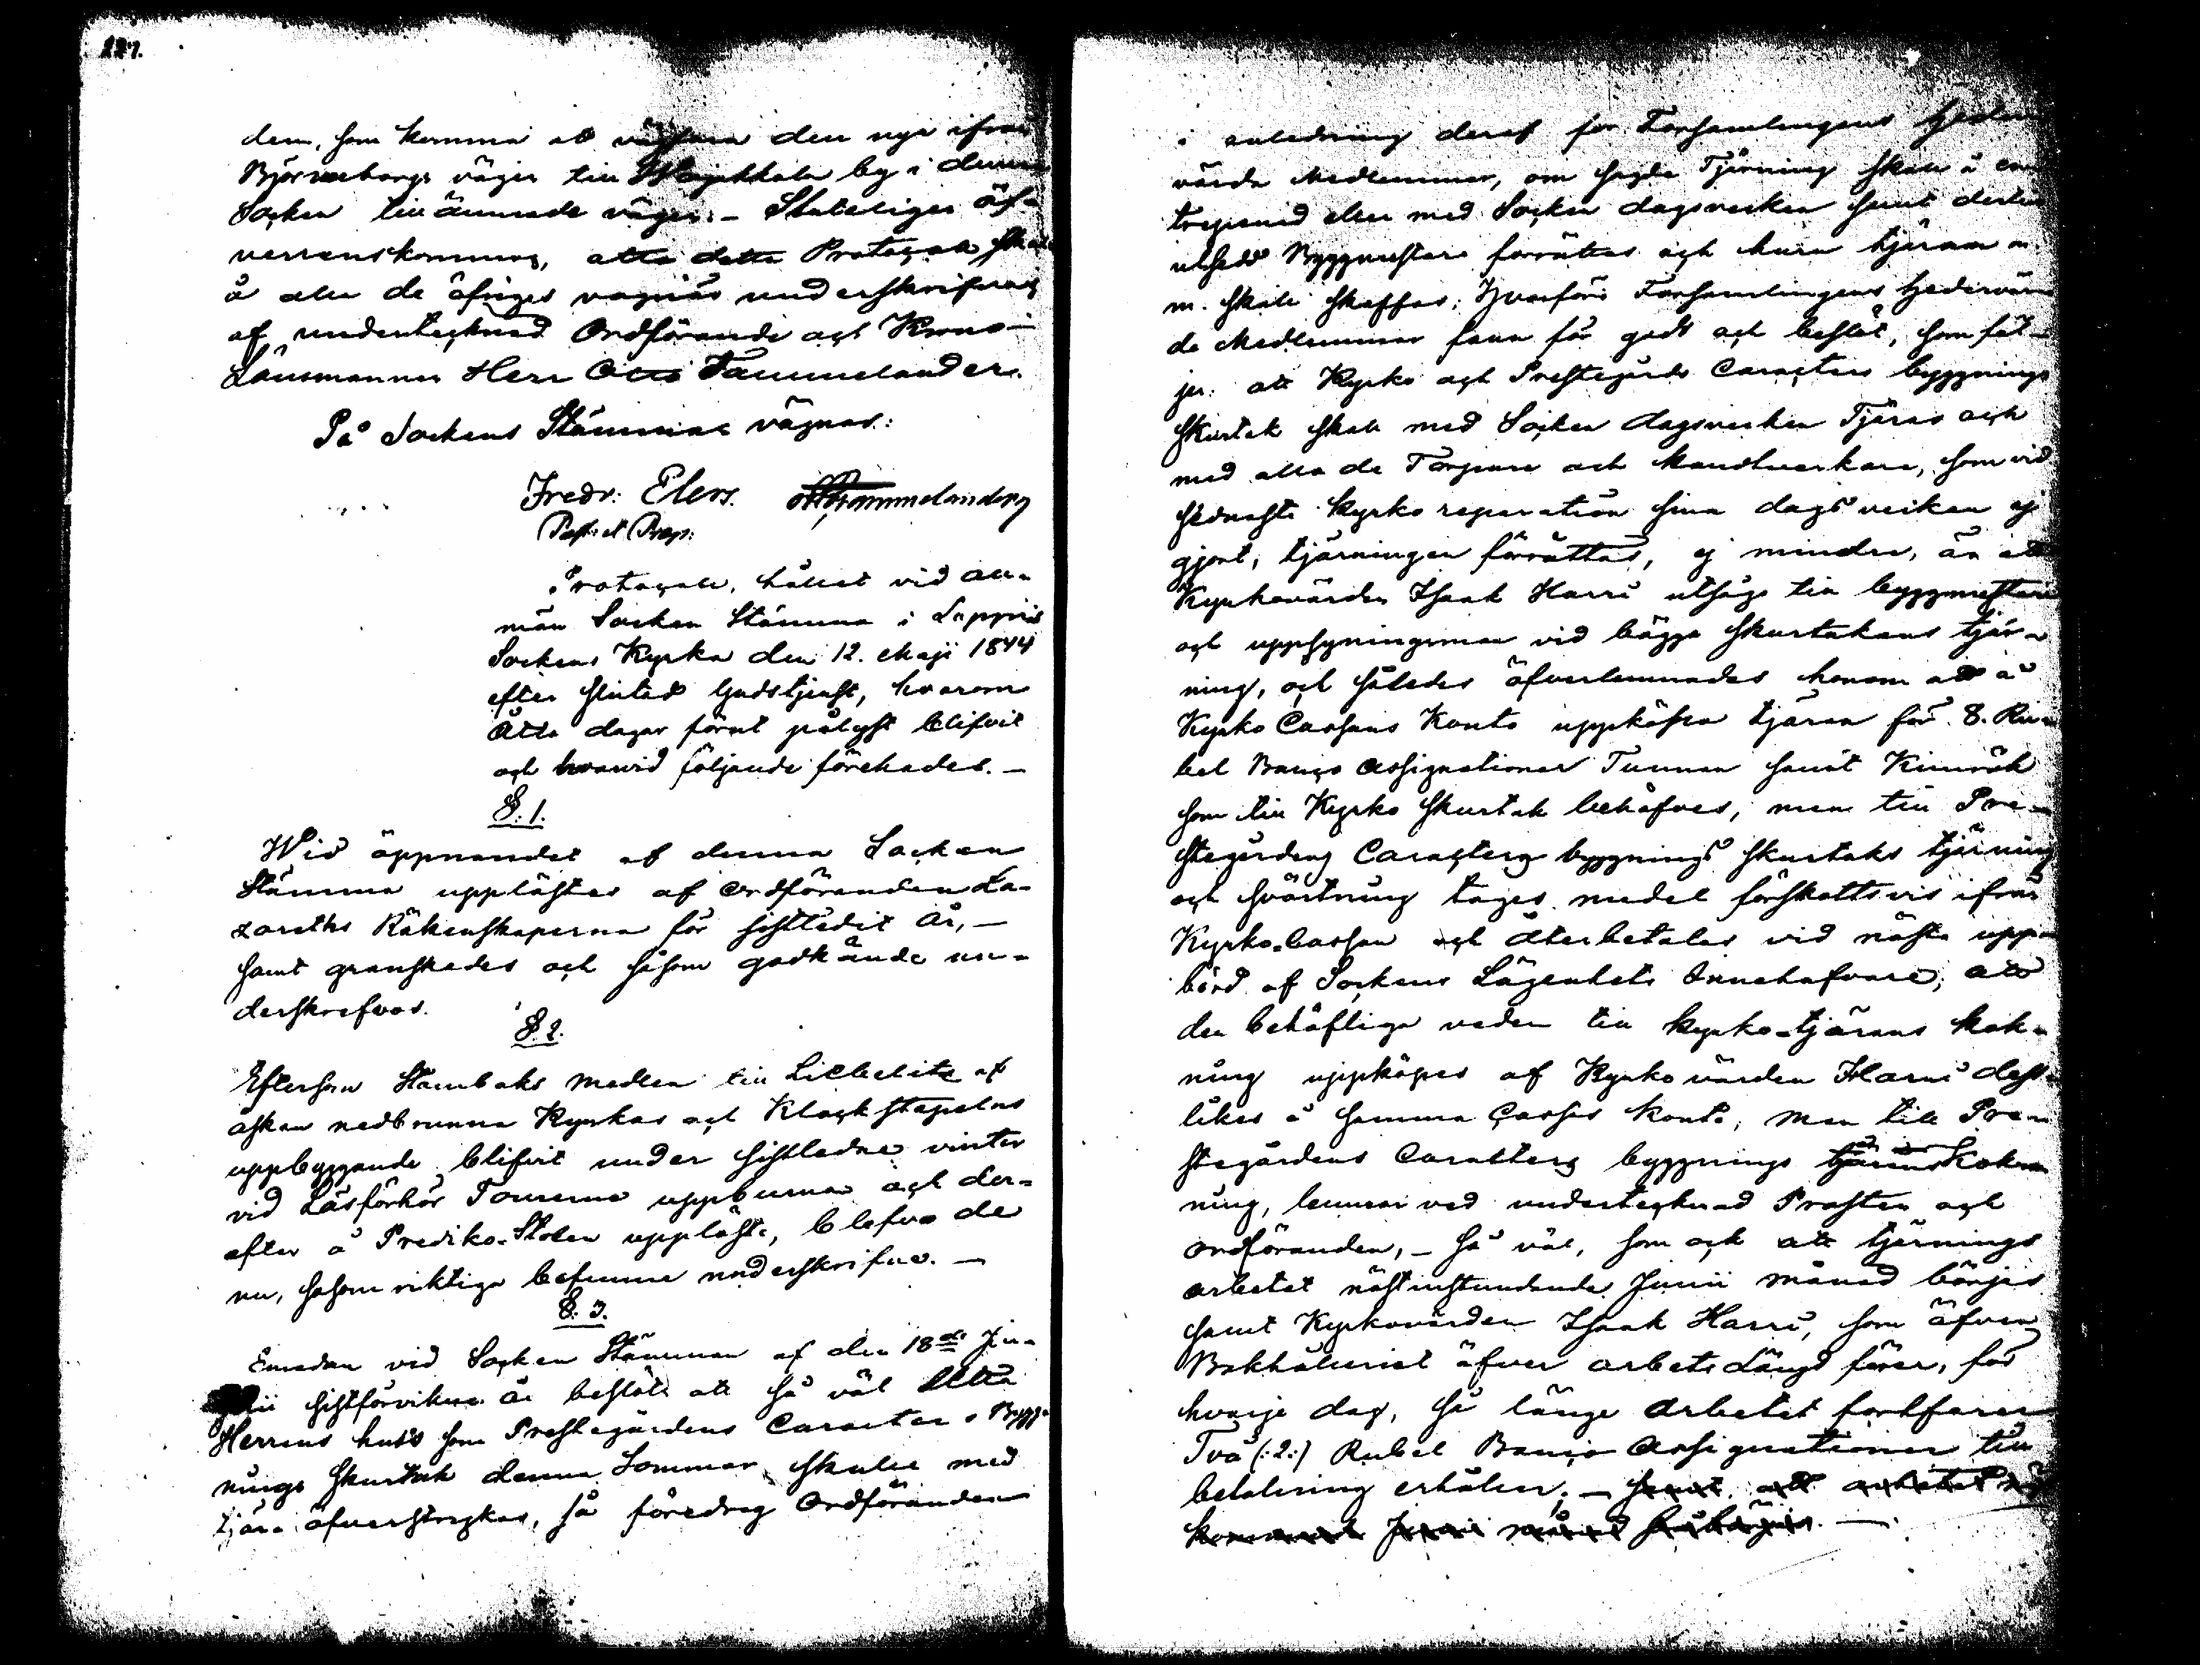 127.
dem, som komma at vägfara den nya ifrån
Björneborgs vägen till by i denna
Socken tillämnade vägen. – Sluteligen öf-
verrenskommos, att detta Protocoll skall
å alla de öfriges vägnar underskrifvas
af undertecknad Ordförande och Krono-
Länsmannen Herr Otto Tammelander.
På Sockens Stämmas vägnar:
Fredr: Elers. Otto Tammelander
Past: et Præp:
Protocoll, hållet vid all-
män Socken Stämma i Lappois
Sockens Kyrka den 12. Maji 1844
efter slutad Gudstjenst, hvarom
Åtta dagar förut pålyst blifvit
och hvarvid följande förehades. –
§. 1.
Wid öppnandet af denna Socken
Stämma upplästes af Ordföranden La-
zareths Räkenskaperna för sistledit år, –
samt granskades och såsom godkände un-
derskrefvos.
§. 2.
Eftersom Stamboks medlen till Lillkelitz af
åskan nedbrunna Kyrkas och Klockstapelns
uppbyggande blifvit under sistledne vinter
vid Läsförhörs Tourerne uppburna och der-
efter å Prediko-Stolen uppläste, blefvo de
nu, såsom riktiga befunne underskrifne. –
§. 3.
Emedan vid Socken Stämman af den 18de Ju-
lii sistförvikne år beslöts att så väl detta
Herrens hus som Prestegårdens Caracters Bygg-
nings Skurtak denna Sommar skulle med
tjära öfverstrykas, så föredrog Ordföranden
i anledning deraf för Församlingens Heder-
värda Medlemmar, om sagde Tjärning skall å en-
treprenad eller med Socken dagsverken samt dertill
utsedd Byggmästare förrättas och huru tjäran m.
m. skall skaffas; Hvarföre Församlingens Hedervär-
de Medlemmar fann för godt och beslöt, som föl-
jer: att Kyrko och Prestegårds Caracters byggnings
Skurtak skall med Socken dagsverken Tjäras och
med alla de Torpare och Handtverkare, som vid
sednaste Kyrko reparation sina dagsverken ej
gjort, tjärningen förrättas, ej mindre, än att
Kyrkovärden Isaak Harri utsågs till byggmästare
och uppsyningsman vid bägge Skurtakens tjär-
ning, och således öfverlemnades honom att å
Kyrko Cassans Konto uppköpa tjäran för 8. Ru-
bel Banco Assignationer Tunnan samt Kimrök
som till Kyrko Skurtak behöfves; men till Pre-
stegårdens Caracters byggnings Skurtaks tjärning
och svärtning tages medel förskottsvis ifrån
Kyrko-Cassan och återbetalas vid nästa upp-
börd af Sockens Lägenhets Innehafvare; att
den behöfliga veden till kyrko-tjärans kok-
ning uppköpes af Kyrkovärden Harri dess-
likes å samma Cassas Konto, men till Pre-
stegårdens Caracters byggnings tjärans Kok-
ning, lemnar ved undertecknad Prosten och
Ordföranden, – så väl, som och att tjärnings
arbetet nästinstundande Junii månad börjas
samt Kyrkovärden Isaak Harri, som äfven
Bokhålleriet öfver arbets Längd förer, för
hvarje dag, så länge Arbetet fortfarer
Två (:2:) Rubel Banco Assignationer till
betalning erhåller. – samt att arbetet
kommande Junii månad